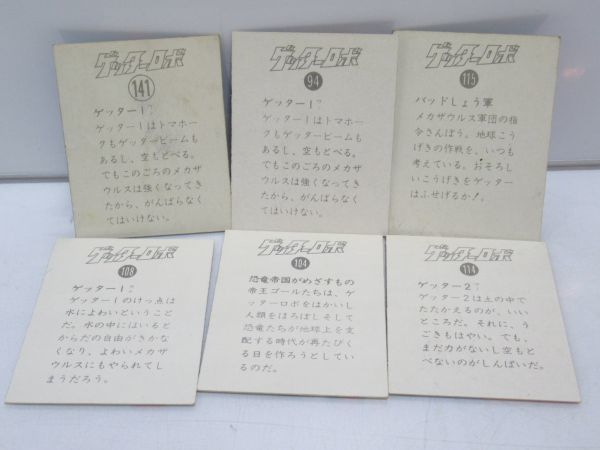 ゲッターロボ
141
ゲッター1 ワン
ゲッター1はトマホー
クもゲッタービームも
あるし、空もとべる。
でもこのごろのメカザ
ウルスは強くなってき
たから、がんばらなく
てはいけない。
ゲッターロボ
94
ゲッター1 ワン
ゲッター1はトマホー
クもゲッタービームも
あるし、空もとべる。
でもこのごろのメカザ
ウルスは強くなってき
たから、がんばらなく
てはいけない。
ゲッターロボ
115
バッドしょう軍
メカザウルス軍団の指
令さんぼう。地球こう
げきの作戦を、いつも
考えている。おそろし
いこうげきをゲッター
はふせげるか!
ゲッターロボ
108
ゲッター1 ワン
ゲッター1のけっ点は
水によわいということ
だ。水の中にはいると
からだの自由がきかな
くなり、よわいメカザ
ウルスにもやられてし
まうだろう。
ゲッターロボ
104
恐竜帝国がめざすもの
帝王ゴールたちは、ゲ
ッターロボをはかいし
人類をほろぼしそして
恐竜たちが地球上を支
配する時代が再たびく
る日を作ろうとしてい
るのだ。
ゲッターロボ
ゲッター2 ツー
ゲッター2は土の中で
たたかえるのが、いい
ところだ。それに、う
ごきもはやい。でも、
まだ力がないし空もと
べないのがしんぱいだ。